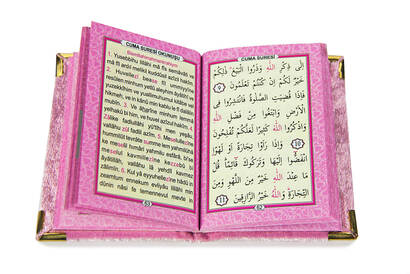 CUMA SURESİ OKUNUŞU
Bismillahirrahmanirrahiym
1. Yusebbihu lillâhi mâ fîs semâvâti ve
mâ fîl ardıl melikil kuddûsil azîzil hakîm.
2. Huvellezî bease fîl ummiyyîne
yuzekkîhim ve yuallimuhumul kitâbe vel
hikmeh, ve in kânû min kablu le fî dalâlin
mubîn. 3. Ve âharîne minhum lemmâ
yelhakû bi him, ve huvel azîzul hakîm. 4.
Zâlike fadlullâhi yu'tîhi men yeşâu,
vallâhu zûl fadlil azîm. 5.
ke meselil hımâri yahmilu esfârâ, bi'se
meselul kavmillezîne kezzebû bi
âyâtillâhi, vallâhu lâ yehdîl kavmez
zâlimîn. 6. Kul yâ eyyuhellezîne hâdû in
zeamtum ennekum evliyâu lillâhi min
dûnin nâsi fe temennevul mevte in
53
CUMA SURESİ
اِلٰى ذِكْرِ اللّٰهِ وَذَرُوا الْبَيْعَ ذٰلِكُمْ
خَيْرٌ لَكُمْ اِنْ كُنْتُمْ تَعْلَمُونَ ٩
فَاِذَا قُضِيَتِ الصَّلٰوةُ فَانْتَشِرُوا فِى
الْاَرْضِ وَابْتَغُوا مِنْ فَضْلِ اللّٰهِ
وَاذْكُرُوا اللّٰهَ كَثِيرًا لَعَلَّكُمْ تُفْلِحُونَ
١٠ وَاِذَا رَاَوْا تِجَارَةً اَوْ لَهْوًا
انْفَضُّوا اِلَيْهَا وَتَرَكُوكَ قَائِمًا قُلْ
مَا عِنْدَ اللّٰهِ خَيْرٌ مِنَ اللَّهْوِ وَمِنَ
التِّجَارَةِ وَاللّٰهُ خَيْرُ الرَّازِقِينَ ١١
52